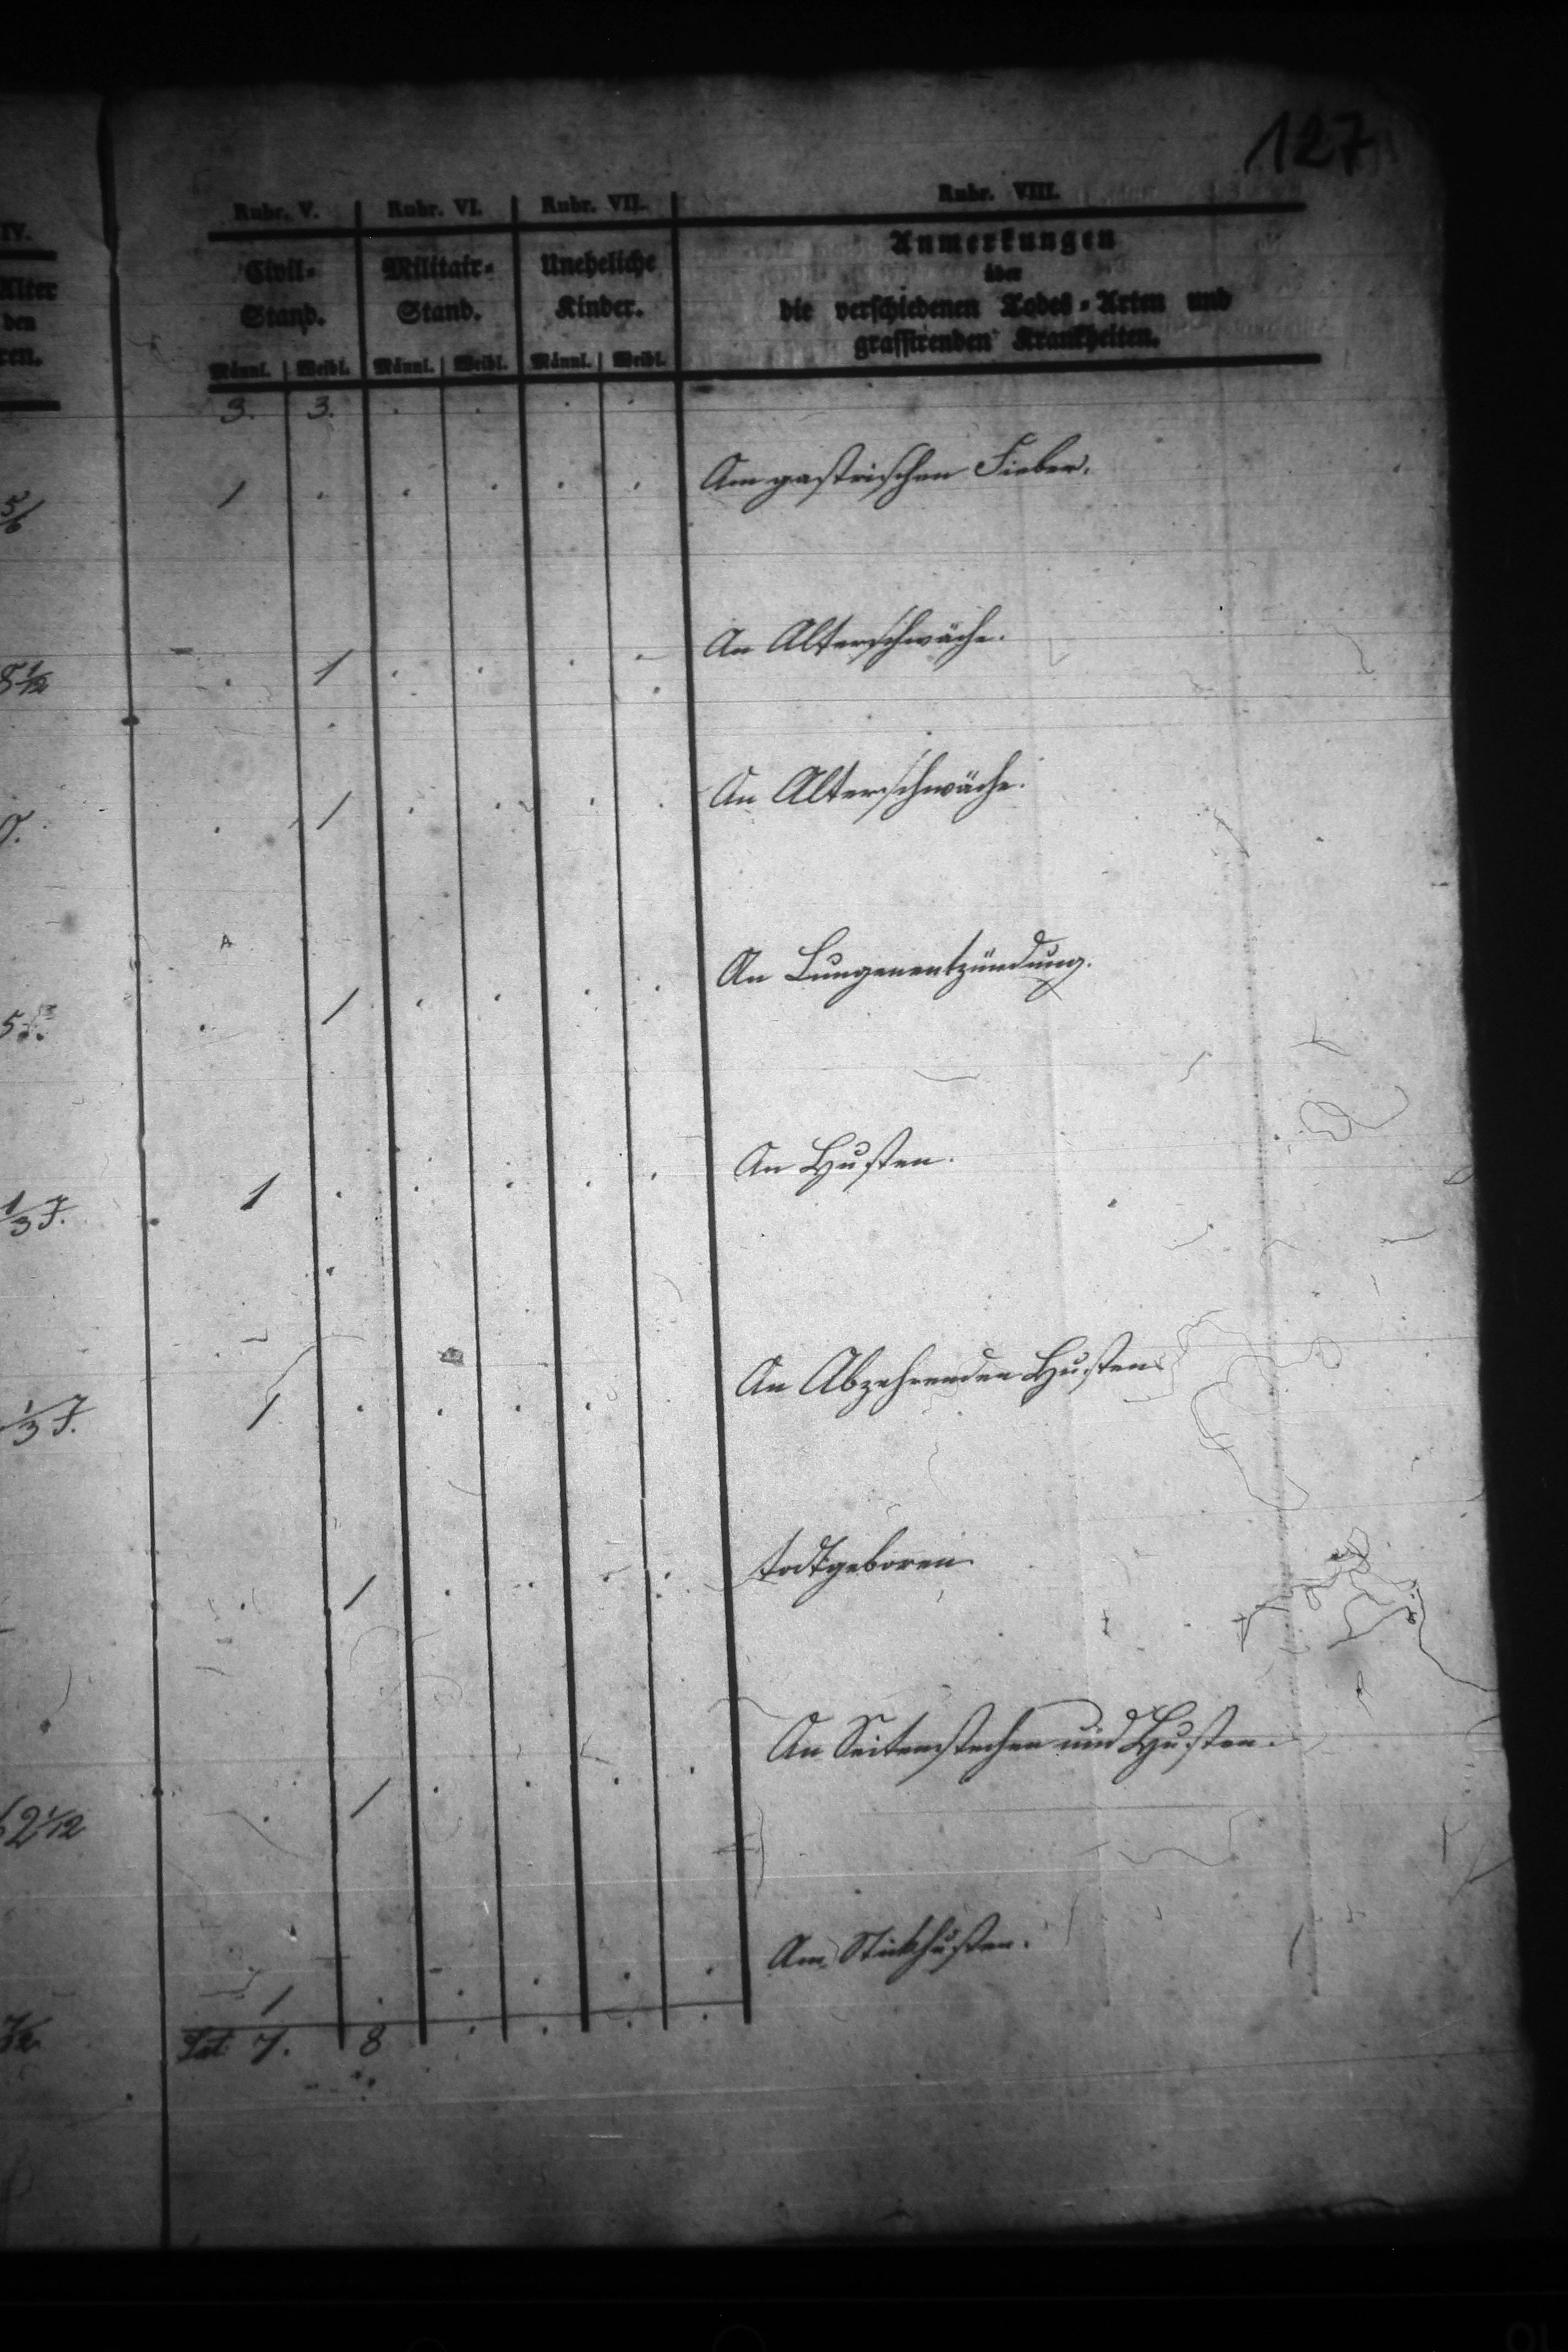 127
Rubr. V. Rubr. VI. Rubr. VII. Rubr. VIII.
IV.
Alter
den
ren.
Civil-
Stand.
Militair-
Stand.
Uneheliche
Kinder.
Anmerkungen
über
die verschiedenen Todes-Arten und
grassirenden Krankheiten.
Männl. Weibl. Männl. Weibl. Männl. Weibl.
3. 3. . . . .
5/6 1 . . . . . Am gastrischen Fieber.
8 1/12 . 1 . . . . An Alterschwäche.
0. . 1 . . . . An Alterschwäche.
5 . 1 . . . . An Lungenentzündung.
1/3 J. 1 . . . . . An Husten.
1/3 J. 1 . . . . . An Abzehrenden Husten
. 1 . . . . todtgeboren
2 1/12 . 1 . . . . An Seitenstechen und Husten.
1 . . . . . Am Stickhusten.
Lat. 7. 8 . . . .